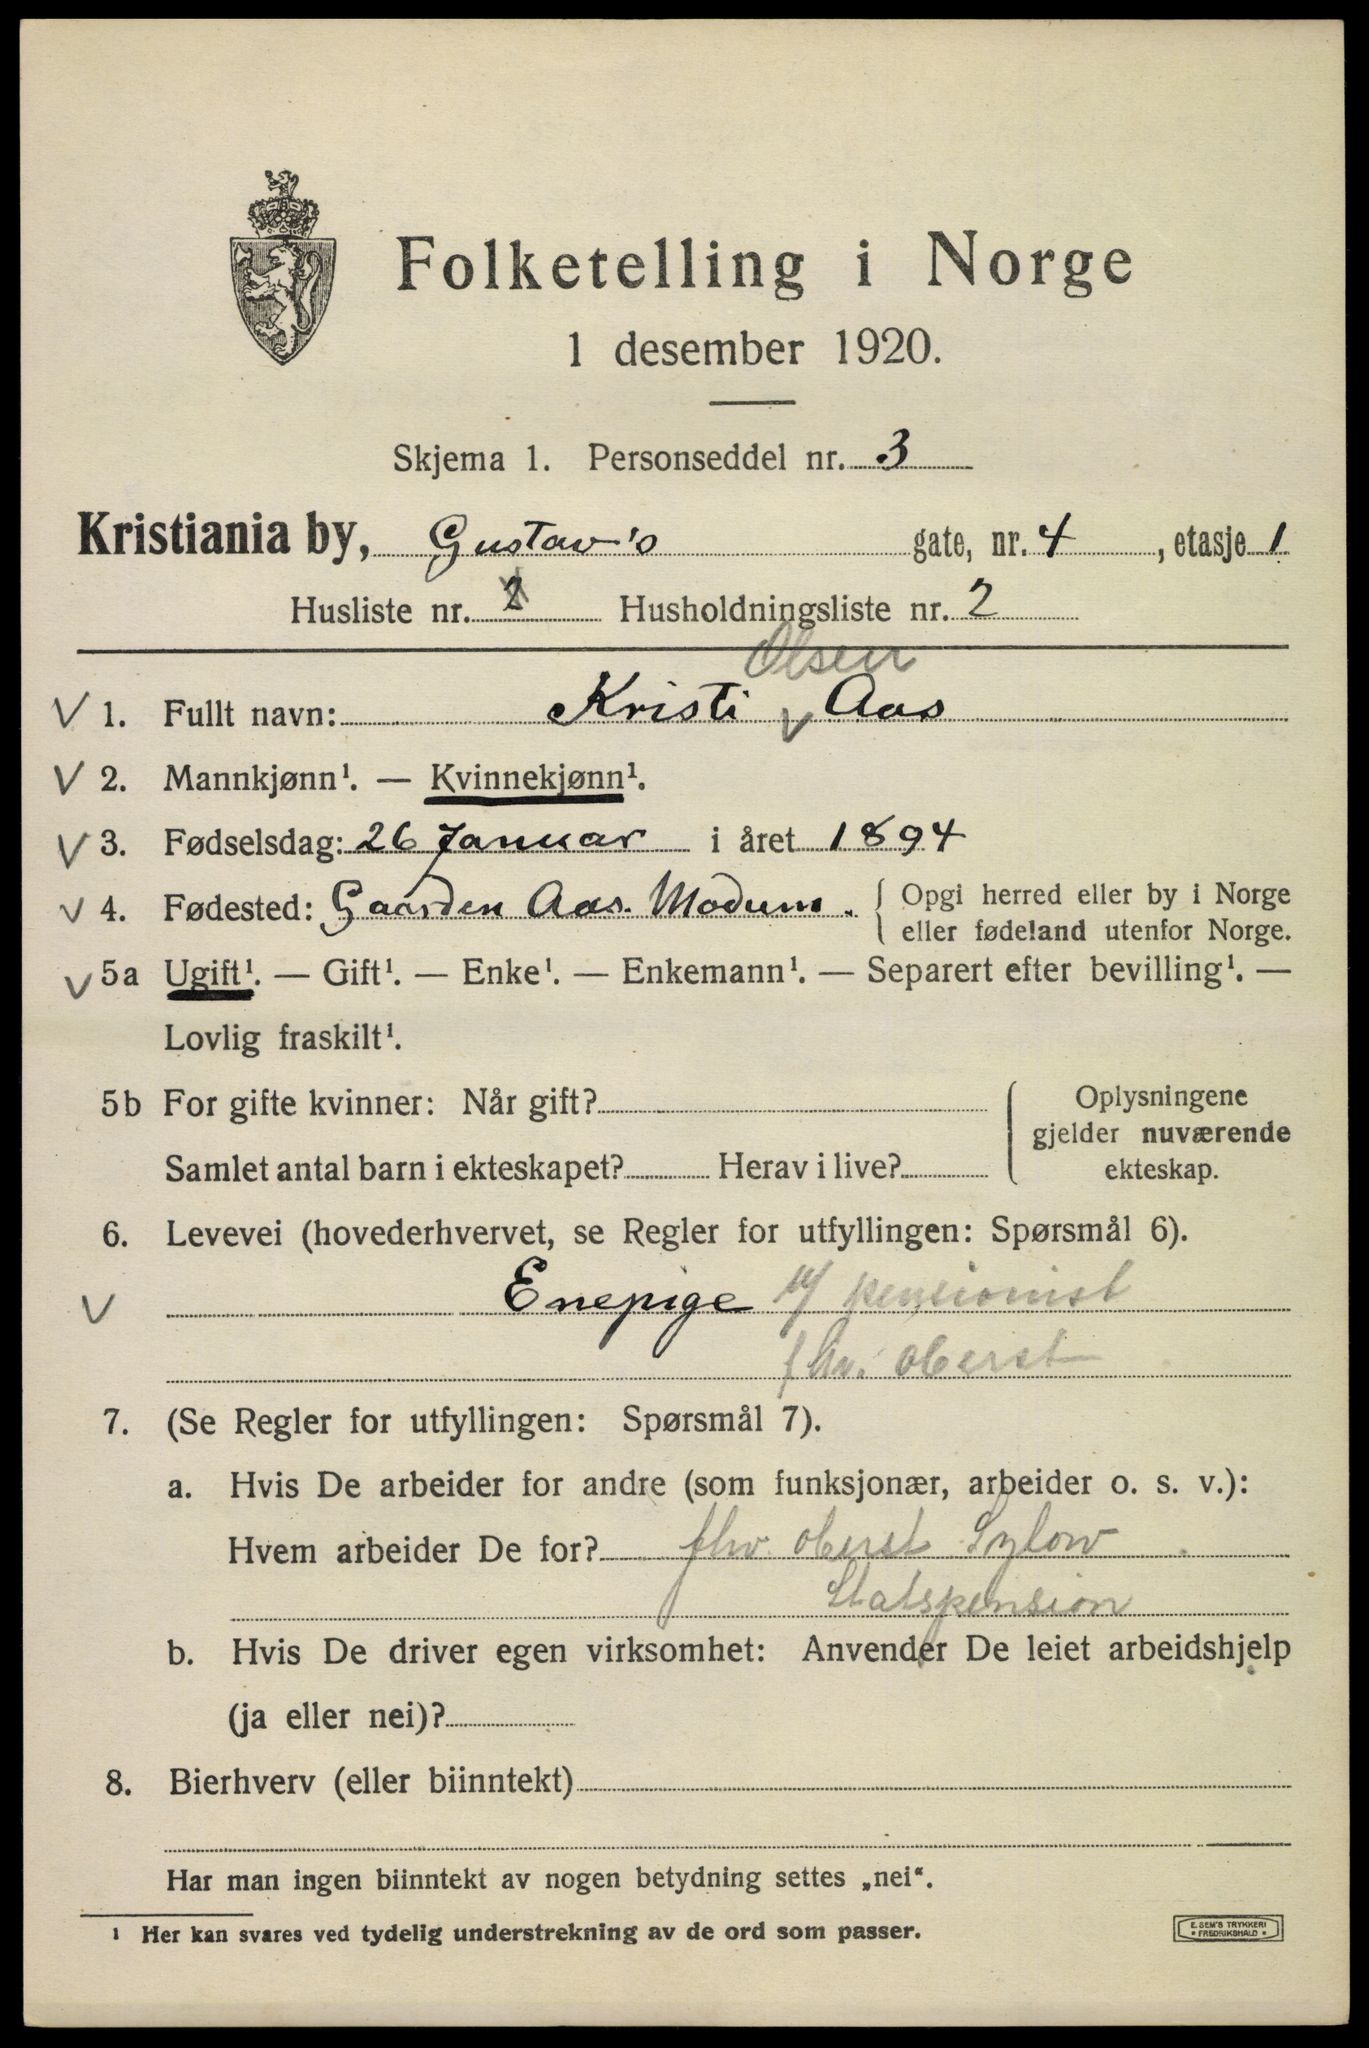 Folketelling i Norge
1 desember 1920.
Skjema 1. Personseddel nr. 3
Kristiania by, Gustav's gate, nr. 4, etasje 1
Husliste nr. 2 Husholdningsliste nr. 2
Olsen
V 1. Fullt navn: Kristi V Aas
V 2. Mannkjønn¹. — Kvinnekjønn¹.
V 3. Fødselsdag: 26 Januar i året 1894
V 4. Fødested: Gaarden Aas. Modum. { Opgi herred eller by i Norge
eller fødeland utenfor Norge.
V 5a Ugift¹. — Gift¹. — Enke¹. — Enkemann¹. — Separert efter bevilling¹. —
Lovlig fraskilt¹.
5b For gifte kvinner: Når gift? Oplysningene
gjelder nuværende
Samlet antal barn i ekteskapet? Herav i live? ekteskap.
6. Levevei (hovederhvervet, se Regler for utfyllingen: Spørsmål 6).
V Enepige pensionist
fhv. oberst
7. (Se Regler for utfyllingen: Spørsmål 7).
a. Hvis De arbeider for andre (som funksjonær, arbeider o. s. v.):
Hvem arbeider De for? fhv. oberst Sylow
Statspension
b. Hvis De driver egen virksomhet: Anvender De leiet arbeidshjelp
(ja eller nei)?
8. Bierhverv (eller biinntekt)
Har man ingen biinntekt av nogen betydning settes „nei“.
¹ Her kan svares ved tydelig understrekning av de ord som passer.
E. SEM'S TRYKKERI
* FREDRIKSHALD *